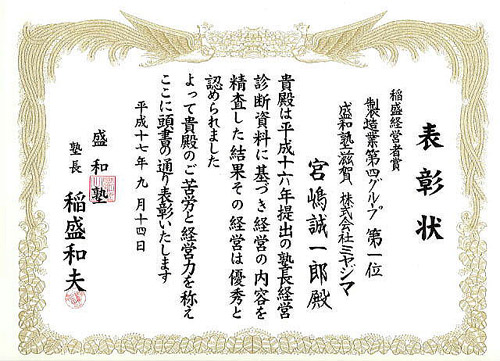 表彰状
稲盛経営者賞
製造業第四グループ 第一位
盛和塾滋賀 株式会社ミヤジマ
宮嶋誠一郎殿
貴殿は平成十六年提出の塾長経営
診断資料に基づき経営の内容を
精査した結果その経営は優秀と
認められました
よって貴殿のご苦労と経営力を称え
ここに頭書の通り表彰いたします
平成十七年九月十四日
盛和塾
塾長 稲盛和夫